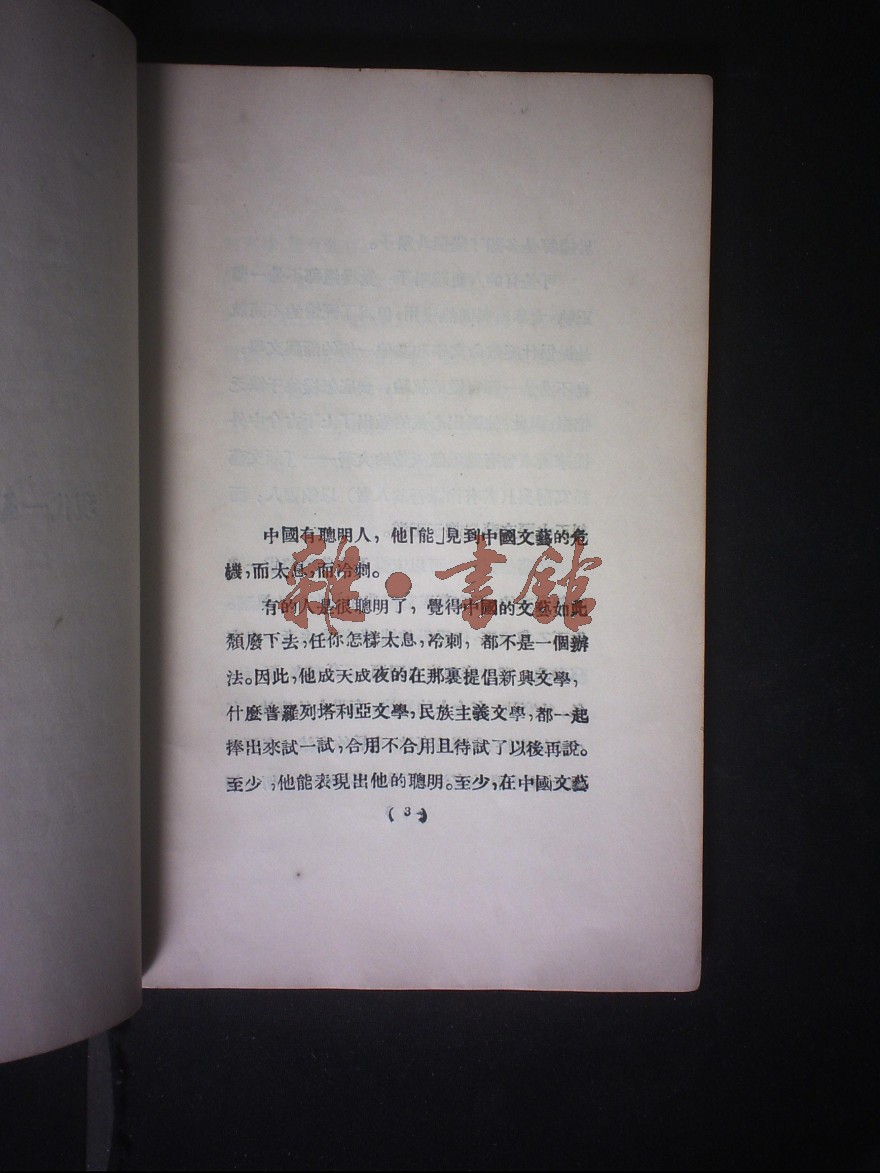 中國有聰明人，他「能」見到中國文藝的危
機，而太息，而冷刺。
有的人是很聰明了，覺得中國的文藝如此
頹廢下去，任你怎樣太息，冷刺，都不是一個辦
法。因此，他成天成夜的在那裏提倡新興文學，
什麼普羅列塔利亞文學，民族主義文學，都一起
捧出來試一試，合用不合用且待試了以後再說。
至少，他能表現出他的聰明。至少，在中國文藝
（3）
雜·書館